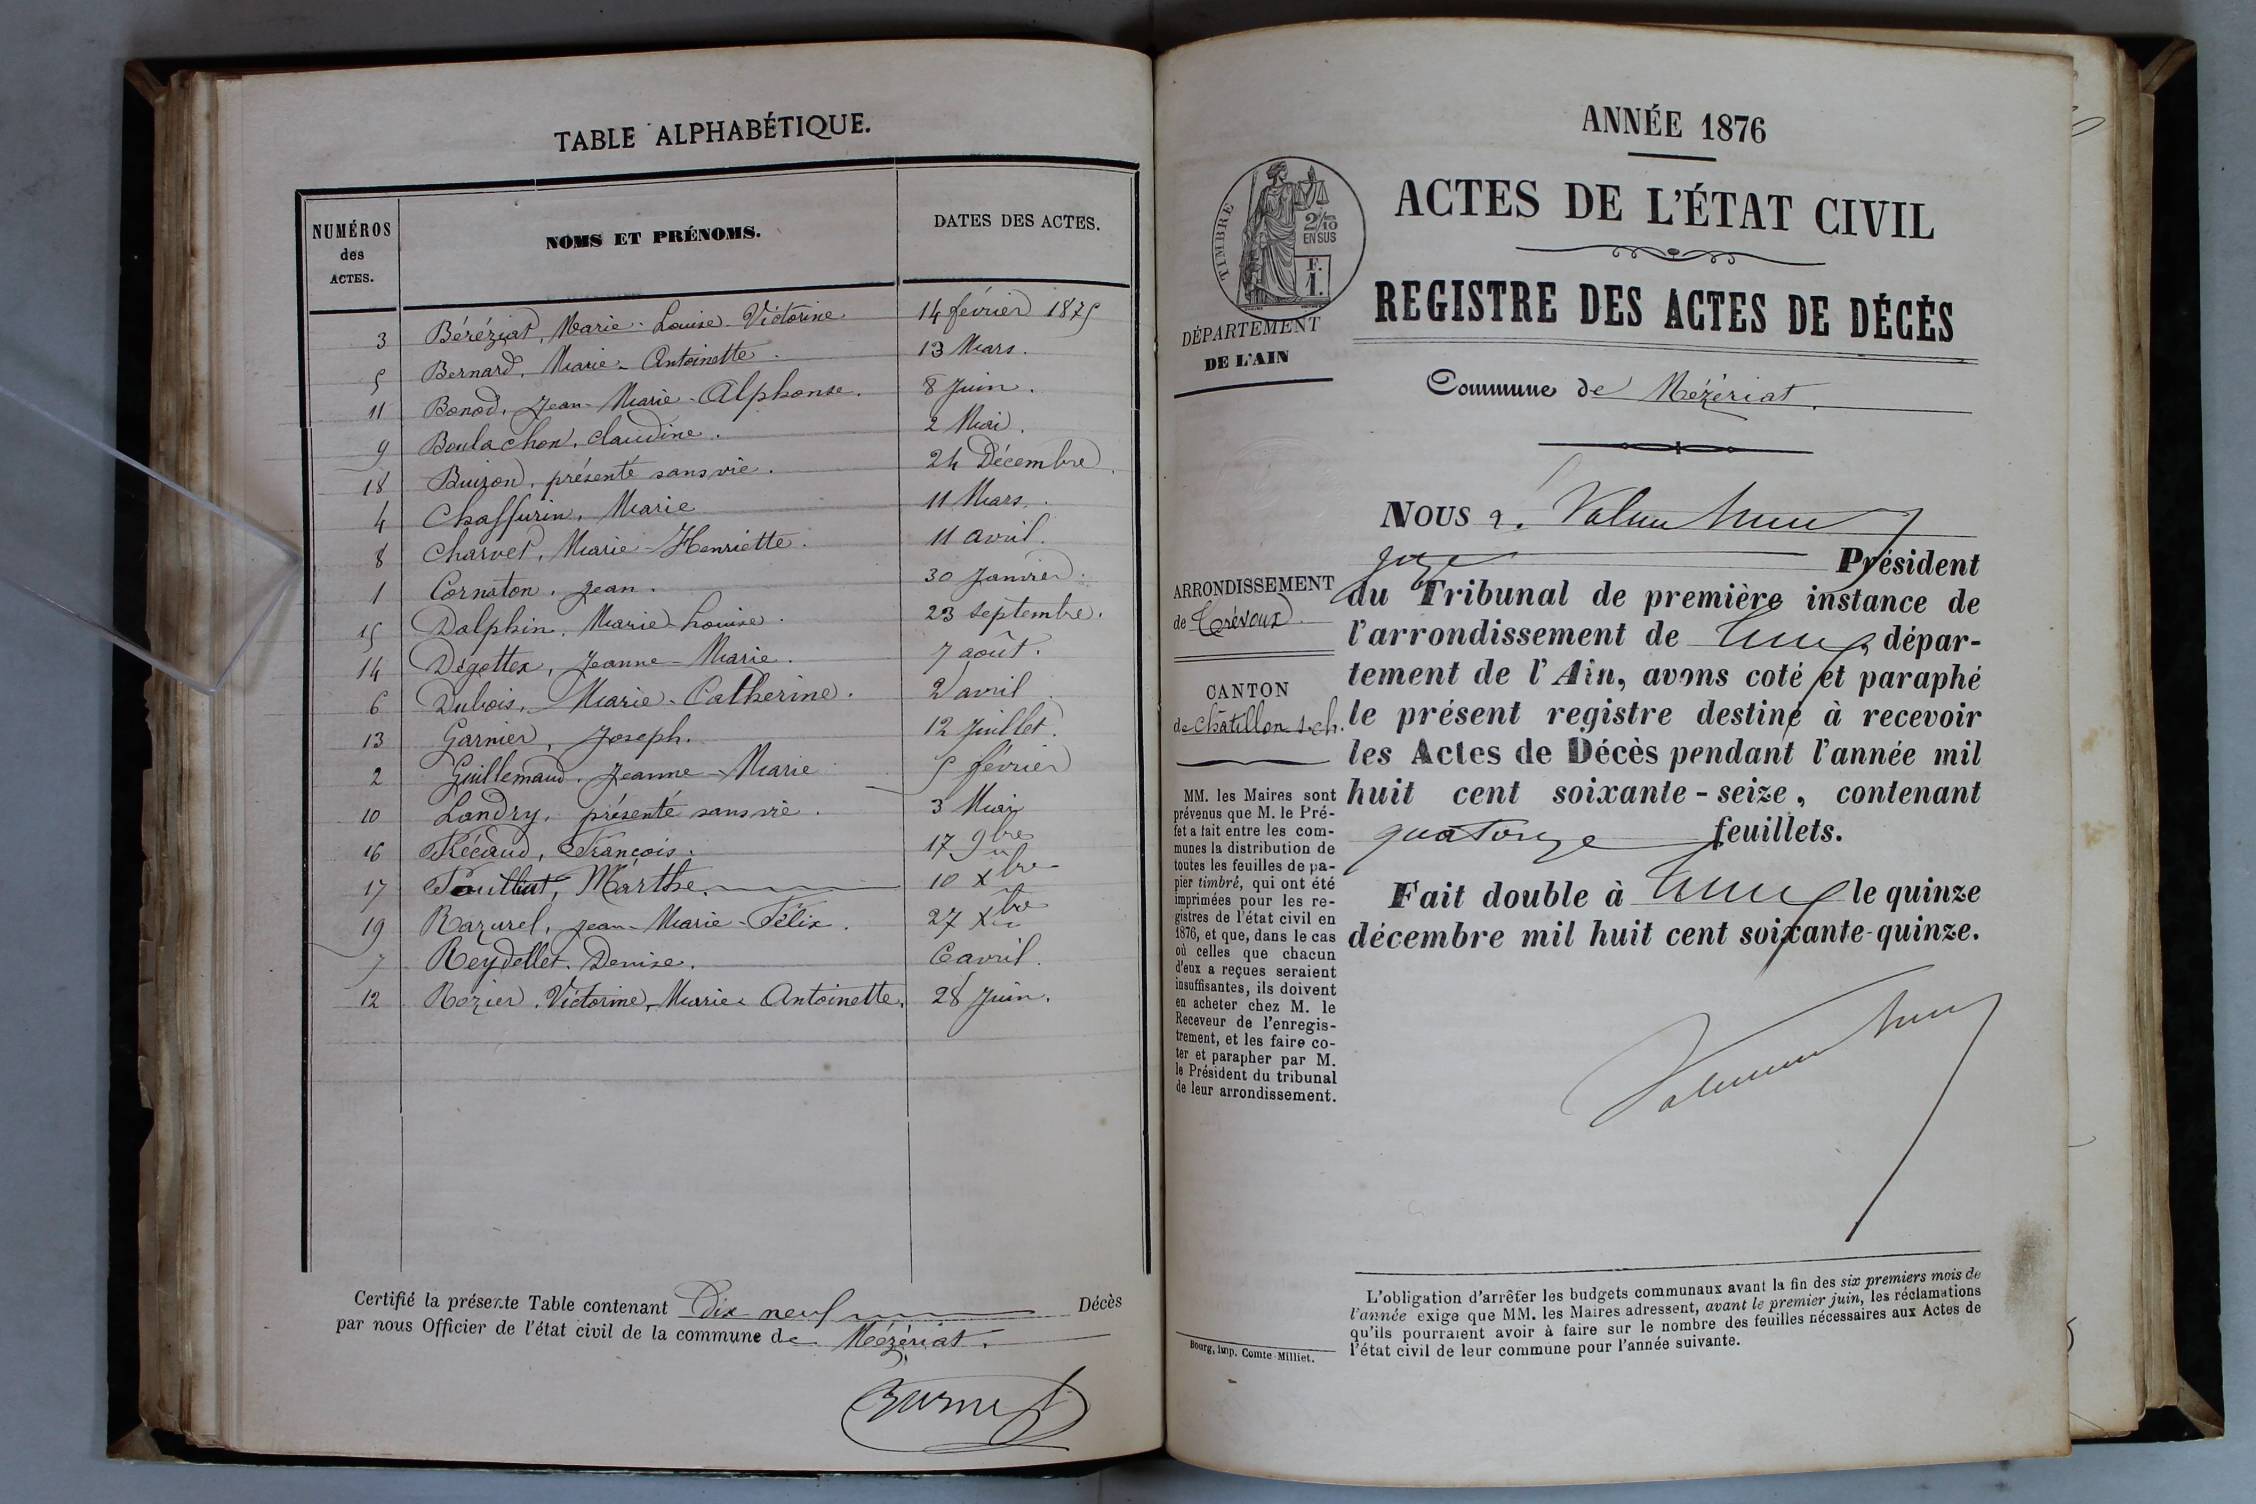 TABLE ALPHABÉTIQUE.
NUMÉROS des ACTES. NOMS ET PRÉNOMS. DATES DES ACTES.
3 Béréziat, Marie-Louise-Victorine 14 février 1875
5 Bernard, Marie-Antoinette. 13 Mars.
11 Bonod, Jean-Marie-Alphonse. 8 Juin.
9 Boulachon, Claudine. 2 Mai.
18 Buizon, présenté sans vie. 24 Décembre.
4 Chaffurin, Marie 11 Mars.
8 Charvet, Marie-Henriette. 11 avril.
1 Cornaton, Jean. 30 Janvier.
15 Dalphin, Marie-Louise. 23 septembre.
14 Degottex, Jeanne-Marie. 7 août.
6 Dubois, Marie-Catherine. 2 avril
13 Garnier, Joseph. 12 Juillet.
2 Guillemaud, Jeanne-Marie 5 février
10 Landry, présenté sans vie. 3 Mai
16 François. 17 9bre
17 Marthe. 10 xbre
19 Razurel, Jean-Marie-Félix. 27 xbre
7 Reydellet, Denise. 6 avril.
12 Rozier, Victorine, Marie-Antoinette. 28 Juin.
Certifié la présente Table contenant Dix neuf Décès
par nous Officier de l'état civil de la commune de Mézériat.
ANNÉE 1876
ACTES DE L'ÉTAT CIVIL
REGISTRE DES ACTES DE DÉCÈS
TIMBRE
2/10
EN SUS
F.
1.
DÉPARTEMENT
DE L'AIN
Commune de Mézériat.
ARRONDISSEMENT
de Trévoux
CANTON
de Châtillon s. ch.
MM. les Maires sont
prévenus que M. le Pré-
fet a fait entre les com-
munes la distribution de
toutes les feuilles de pa-
pier timbré, qui ont été
imprimées pour les re-
gistres de l'état civil en
1876, et que, dans le cas
où celles que chacun
d'eux a reçues seraient
insuffisantes, ils doivent
en acheter chez M. le
Receveur de l'enregis-
trement, et les faire co-
ter et parapher par M.
le Président du tribunal
de leur arrondissement.
Bourg, imp. Comte-Milliet.
NOUS
juge Président
du Tribunal de première instance de
l'arrondissement de dépar-
tement de l'Ain, avons coté et paraphé
le présent registre destiné à recevoir
les Actes de Décès pendant l'année mil
huit cent soixante-seize, contenant
quatorze feuillets.
Fait double à le quinze
décembre mil huit cent soixante-quinze.
L'obligation d'arrêter les budgets communaux avant la fin des six premiers mois de
l'année exige que MM. les Maires adressent, avant le premier juin, les réclamations
qu'ils pourraient avoir à faire sur le nombre des feuilles nécessaires aux Actes de
l'état civil de leur commune pour l'année suivante.